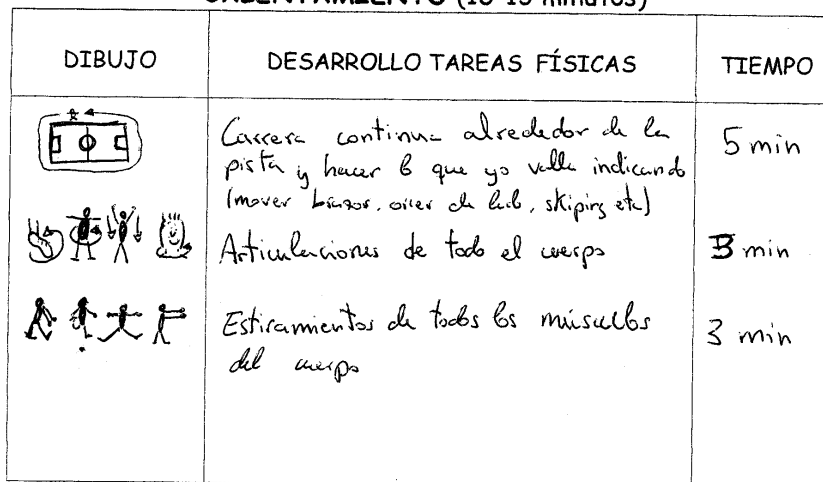 CALENTAMIENTO (10-15 minutos)
DIBUJO DESARROLLO TAREAS FÍSICAS TIEMPO
Carrera continua alrededor de la 5 min
pista y hacer lo que yo valla indicando
(mover brazos, correr de lado, skiping etc)
Articulaciones de todo el cuerpo 3 min
Estiramientos de todos los músculos 3 min
del cuerpo